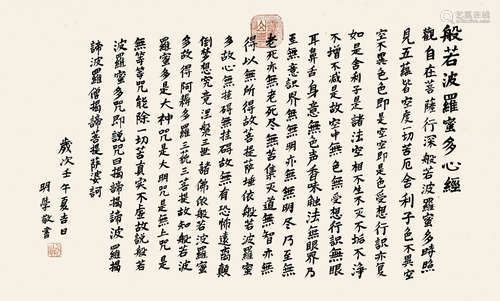 般若波羅蜜多心經
觀自在菩薩行深般若波羅蜜多時照
見五蘊皆空度一切苦厄舍利子色不異空
空不異色色即是空空即是色受想行識亦復
如是舍利子是諸法空相不生不滅不垢不淨
不增不減是故空中無色無受想行識無眼
耳鼻舌身意無色声香味触法無眼界乃
至無意識界無無明亦無無明尽乃至無
老死亦無老死尽無苦集灭道無智亦無
得以無所得故菩提薩埵依般若波羅蜜
多故心無挂碍無挂碍故無有恐怖遠離顛
倒梦想究竟涅槃三世諸佛依般若波羅蜜
多故得阿耨多羅三藐三菩提故知般若波
羅蜜多是大神咒是大明咒是無上咒是
無等等咒能除一切苦真实不虛故說般若
波羅蜜多咒即說咒曰揭諦揭諦波羅揭
諦波羅僧揭諦菩提萨婆訶
歲次壬午夏吉日
明學敬書